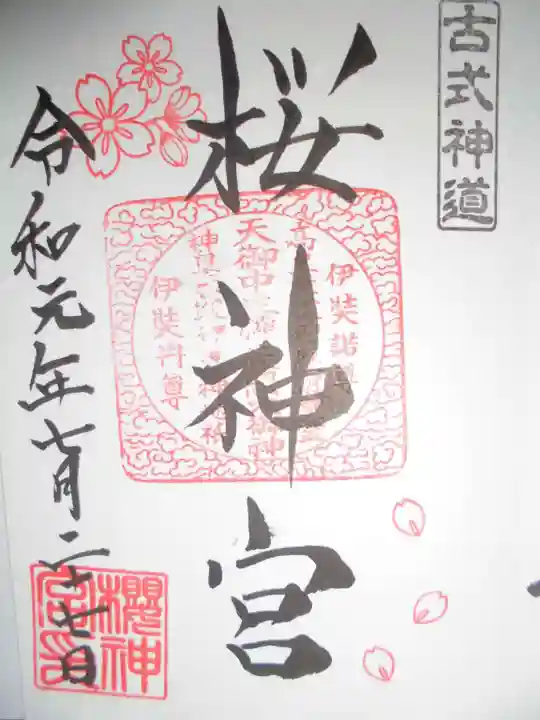 古式神道
桜神宮
伊奘諾尊
天御中
伊奘冉尊
令和元年七月二十七日
櫻神